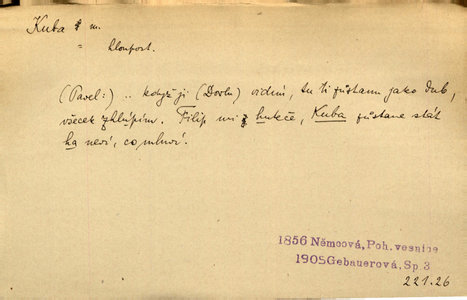 Kuba m.
(Pavel:) .. když ji (Dorlu) vidím, tu ti zůstanu jako dub,
všecek zhlúpím. Filip mi z hukče, Kuba zůstane stát
ha neví, co mluví.
1856 Němcová, Poh. vesnice
1905 Gebauerová, Sp. 3
22.1.26